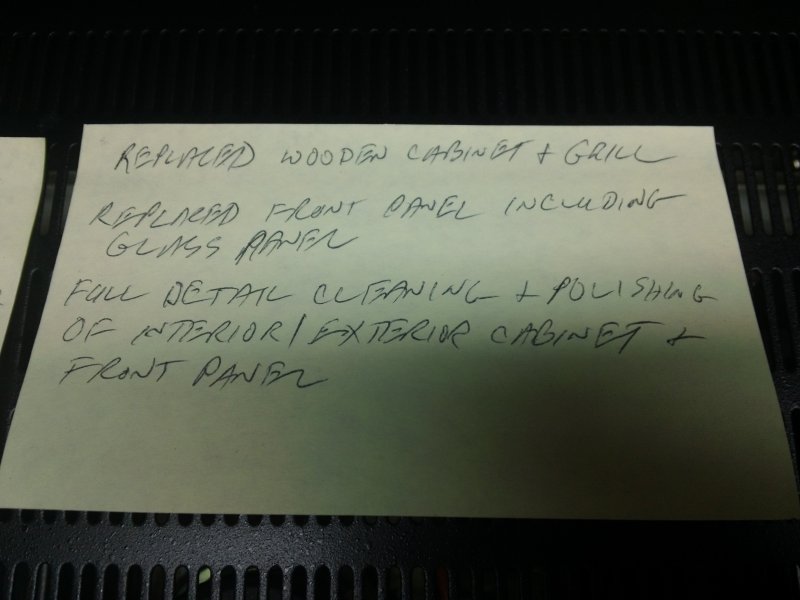 REPLACED WOODEN CABINET + GRILL
REPLACED FRONT PANEL INCLUDING
GLASS PANEL
FULL DETAIL CLEANING + POLISHING
OF INTERIOR/EXTERIOR CABINET +
FRONT PANEL